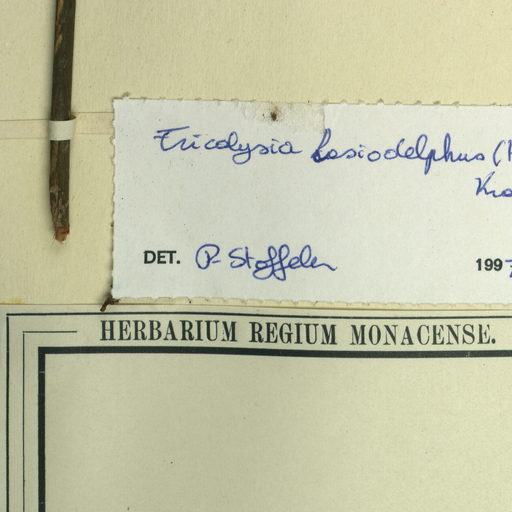 Tricalysia lasiodelphus (K
Kra
DET. P. Stoffelen 1997
HERBARIUM REGIUM MONACENSE.